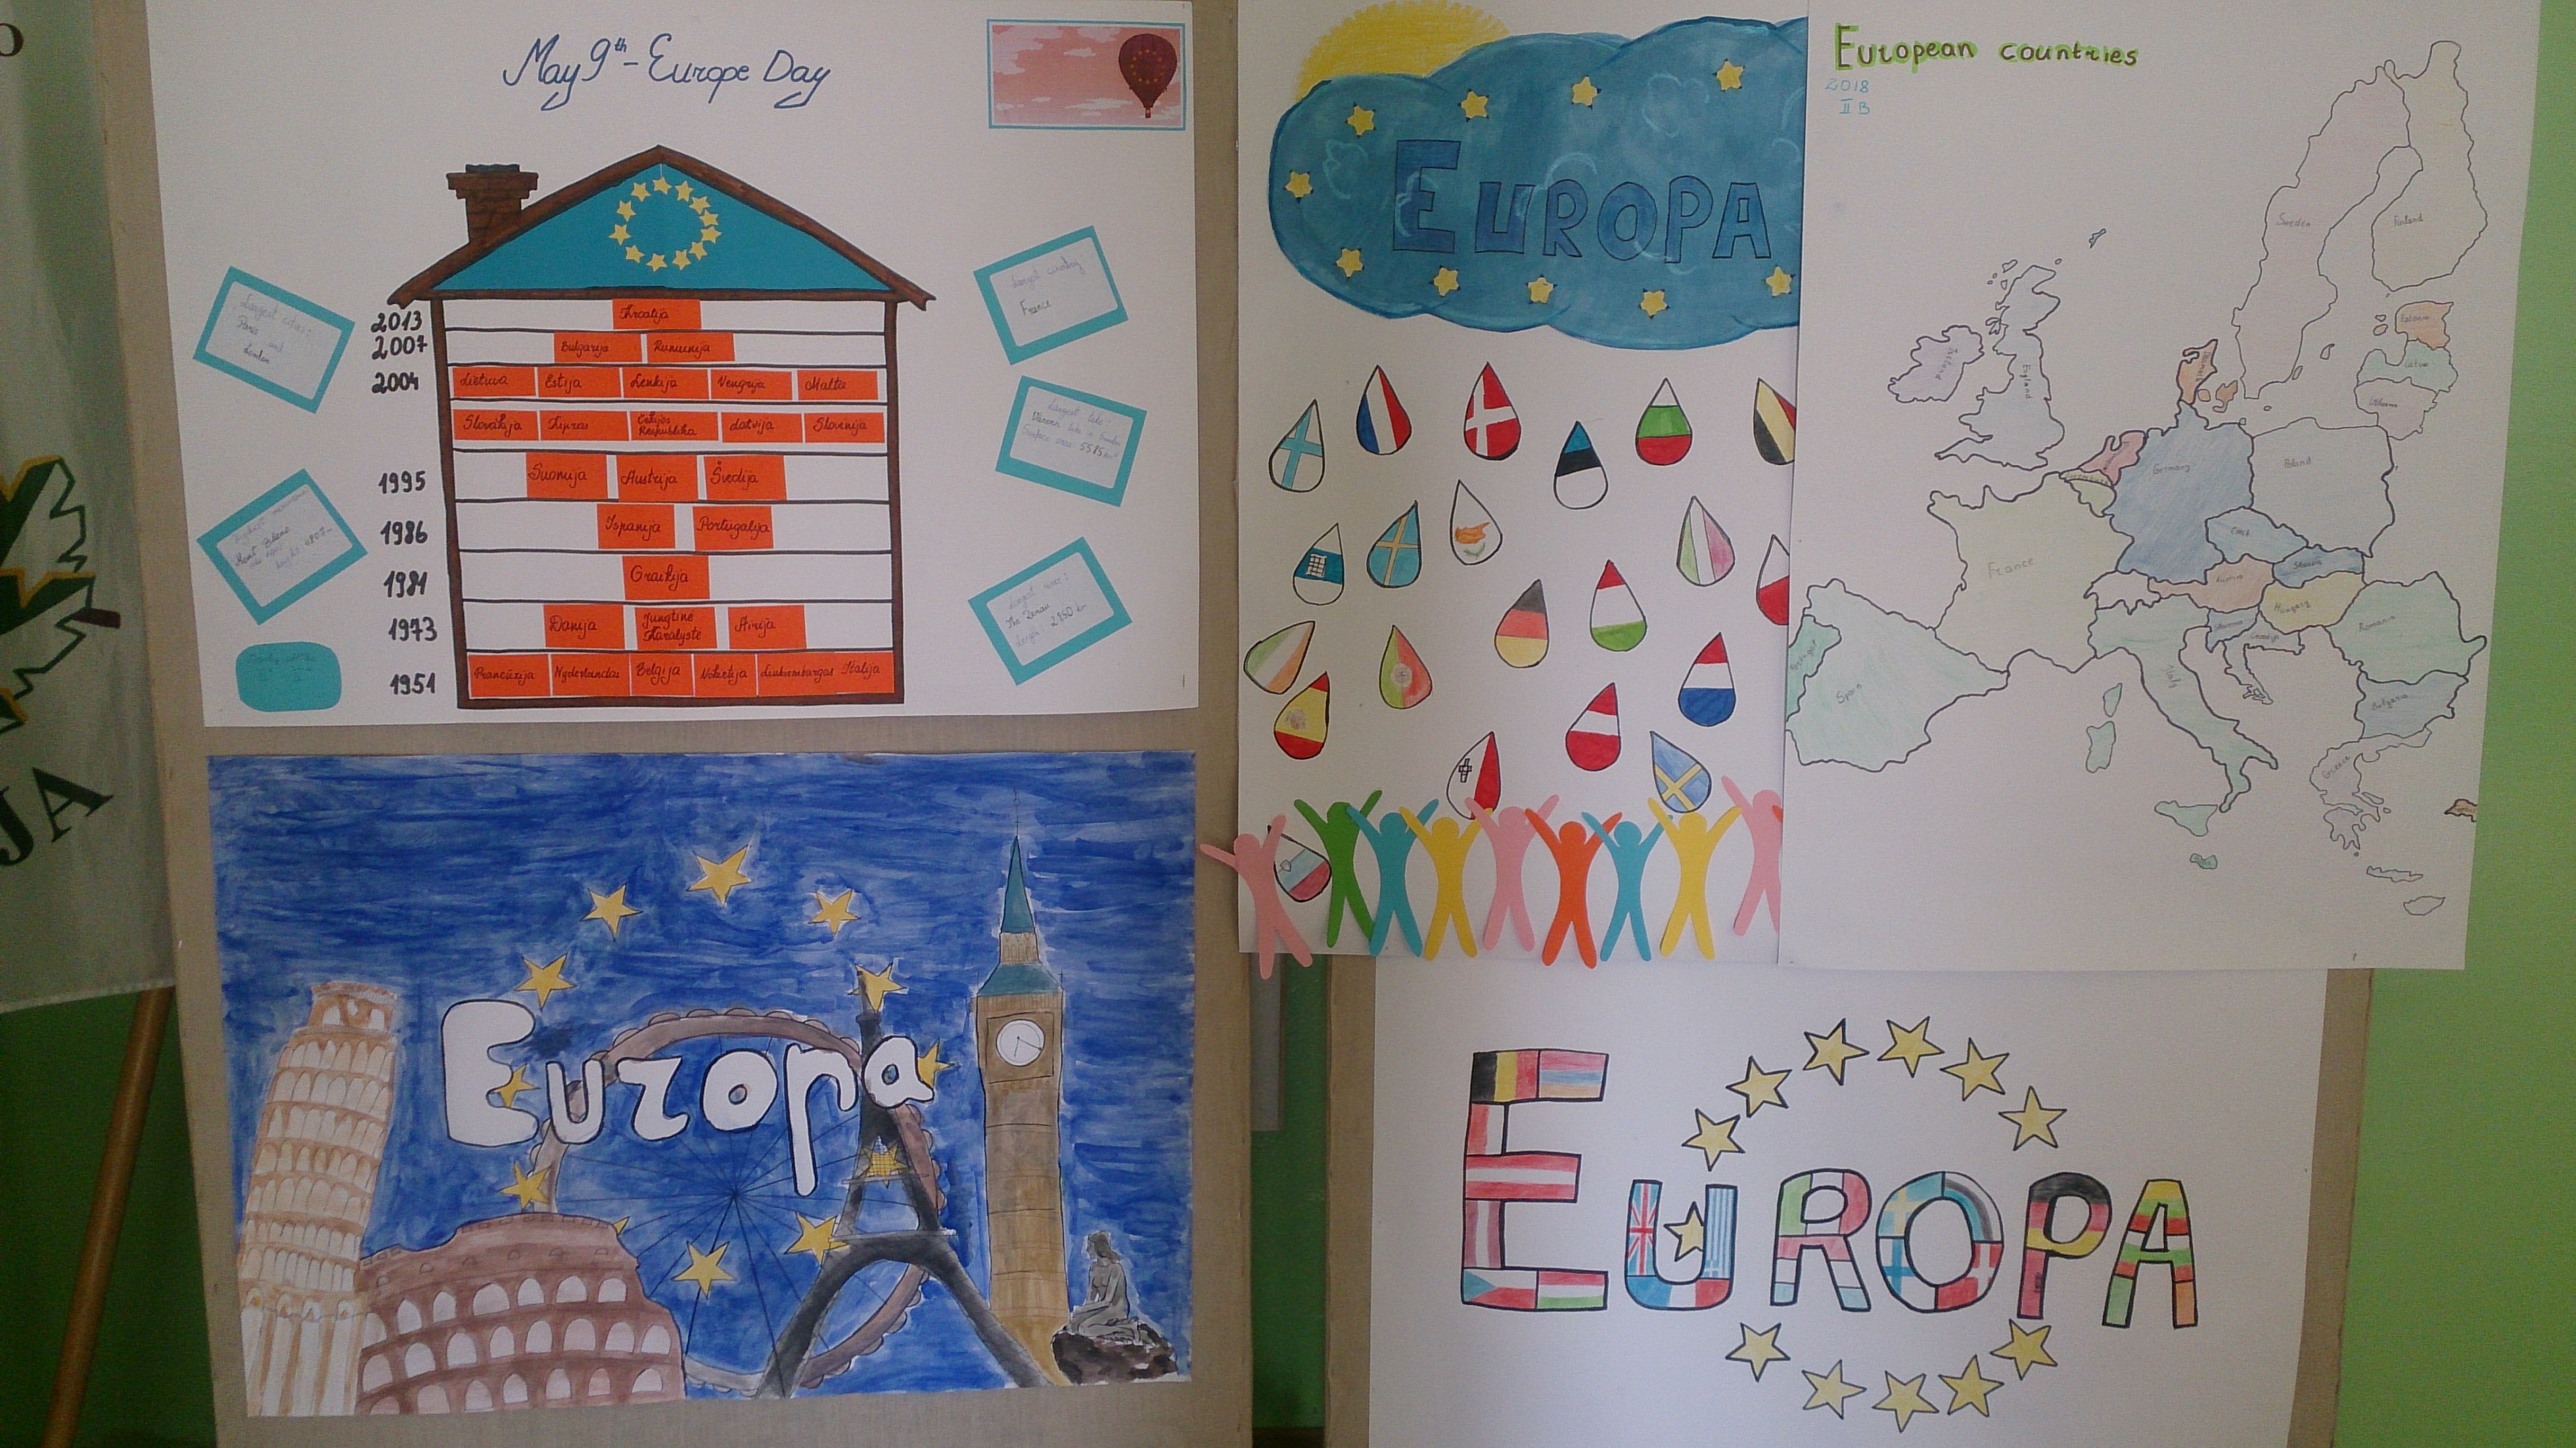 May 9th - Europe Day
Largest cities:
Paris
and
London
Largest country
France
2013
Kroatija
2007
Bulgarija Rumunija
2004
Lietuva Estija Lenkija Vengrija Malta
Slovakija Kipras Čekijos Respublika Latvija Slovenija
1995
Suomija Austrija Švedija
1986
Ispanija Portugalija
1981
Graikija
1973
Danija Jungtinė Karalystė Airija
1951
Prancūzija Nyderlandai Belgija Vokietija Liuksemburgas Italija
Largest lake:
Mont Blanc
Largest river:
2850 km
EUROPA
European countries
2018
II B
Sweden
Finland
Estonia
Latvia
Ireland
England
Germany
Poland
France
Czech
Slovakia
Austria
Hungary
Slovenia
Romania
Portugal
Spain
Italy
Bulgaria
Greece
Europa
EUROPA
JA